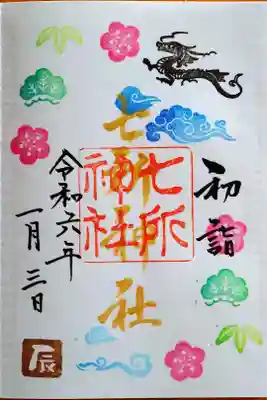 初詣
七所神社
七所
神社
令和六年
一月三日
辰